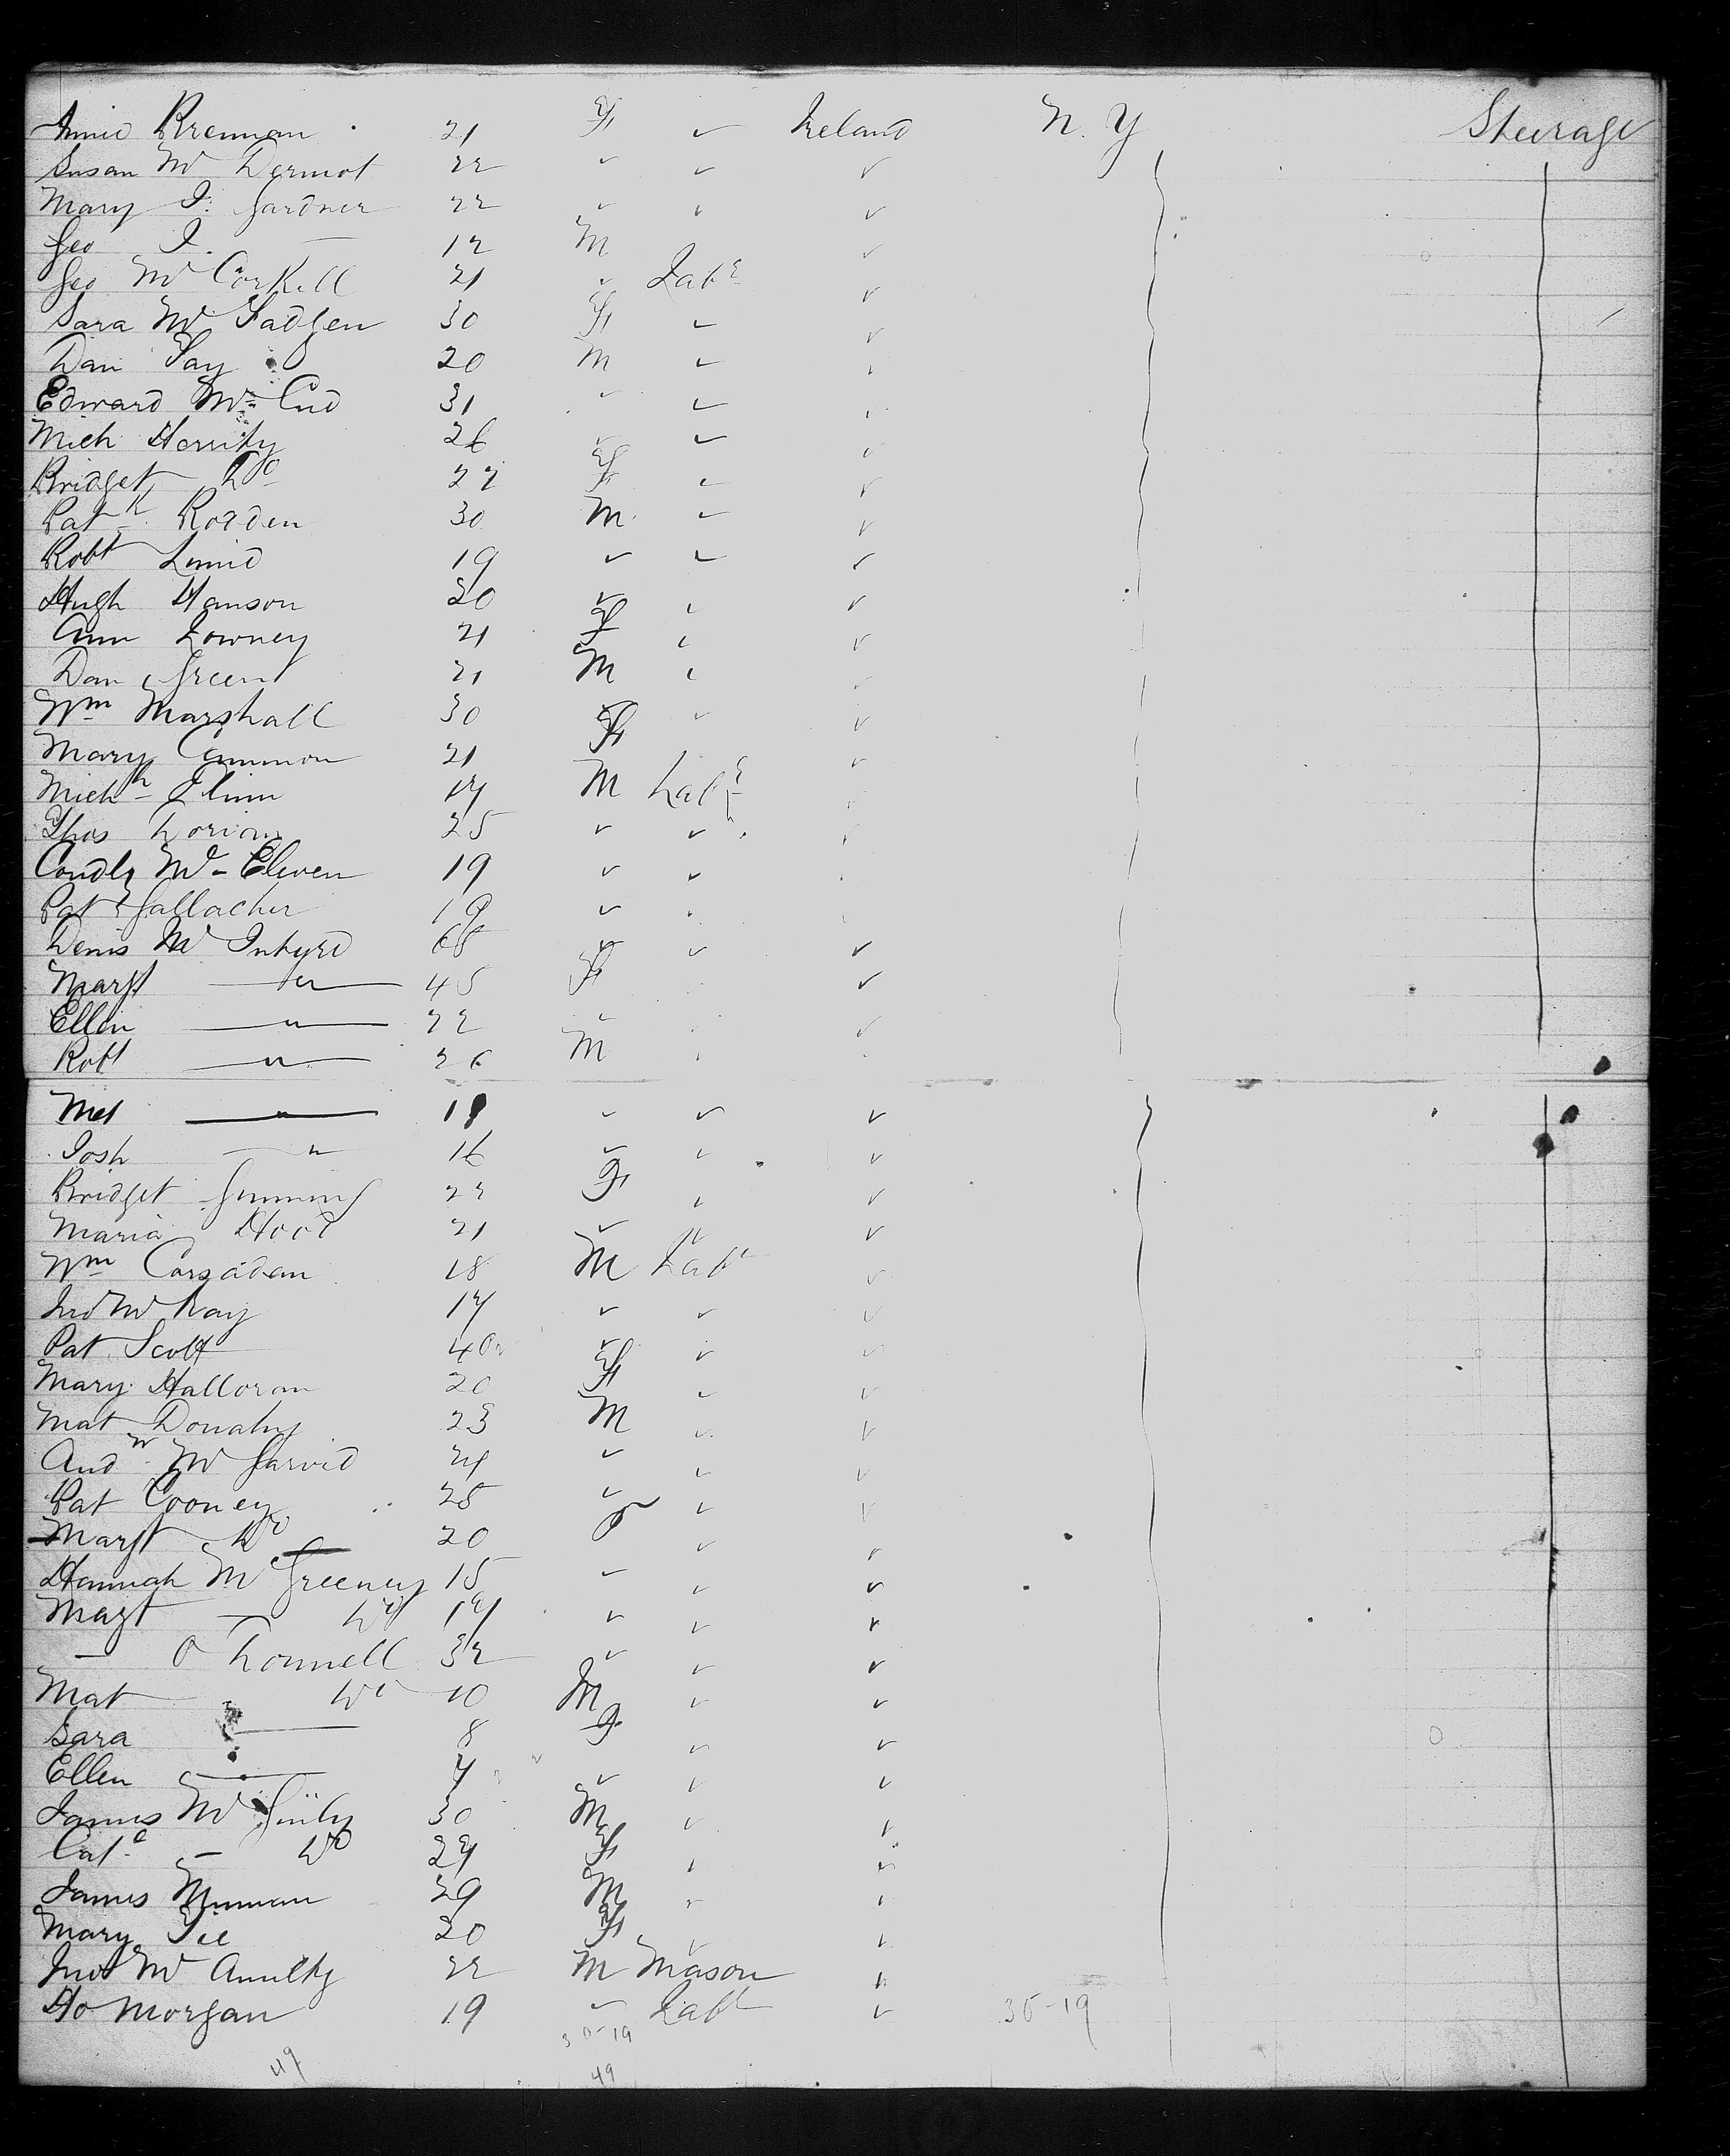 Annie Brennan 21 F ✓ Ireland N. Y Steerage
Susan Mc Dermot 22 ✓ ✓ ✓
Mary J. Gardner 22 ✓ ✓ ✓
Geo J. — 12 M ✓
Geo Mc Corkell 21 ✓ Labr ✓
Sara Mc Fadgen 30 F ✓ ✓
Dan Fay 20 M ✓ ✓
Edward Mc Cue 31 ✓ ✓ ✓
Mich Herrity 26 ✓ ✓ ✓
Bridget Do 27 F ✓ ✓
Patk Rodden 30 M ✓ ✓
Robt 19 ✓ ✓ ✓
Hugh Hanson 20 ✓ ✓ ✓
Ann Lowney 21 F ✓ ✓
Dan Green 21 M ✓ ✓
Wm Marshall 30 ✓ ✓
Mary Cummon 21 F ✓
Mich Flinn 17 M Labr ✓
Thos Dorian 25 ✓ ✓ ✓
Condy Mc Elween 19 ✓ ✓ ✓
Pat Gallacher 19 ✓ ✓ ✓
Denis Mc Intyre 65 ✓ ✓ ✓
Margt — " — 45 F ✓
Ellen — " — 22 ✓ ✓ ✓
Robt — " — 26 M ✓ ✓
— " — 18 ✓ ✓ ✓
Josh — " 16 ✓ ✓ ✓
Bridget Gunning 22 F ✓ ✓
Maria Hood 21 ✓ ✓ ✓
Wm Corscaden 18 M Labr ✓
Jno Mc Kay 17 ✓ ✓ ✓
Pat Scott 40 ✓ ✓ ✓
Mary Halloran 20 F ✓ ✓
Mat Donahy 23 M ✓ ✓
Andw Mc Garvie 24 ✓ ✓ ✓
Pat Cooney 25 ✓ ✓ ✓
Margt Do 20 F ✓ ✓
Hannah Mc Greeney 15 ✓ ✓ ✓
Magt — Do 17 ✓ ✓ ✓
— O Donnell 32 ✓ ✓ ✓
Mat Do 10 M ✓ ✓
Sara — 8 F ✓ ✓
Ellen — 7 ✓ ✓ ✓
James Mc Ginly 30 M ✓ ✓
Cate — Do 27 F ✓ ✓
James 29 M ✓ ✓
Mary Gee 20 F ✓ ✓
Jno Mc Anulty 22 M Mason ✓
Ho Morgan 19 ✓ Labr ✓ 30-19
30-19
49 49